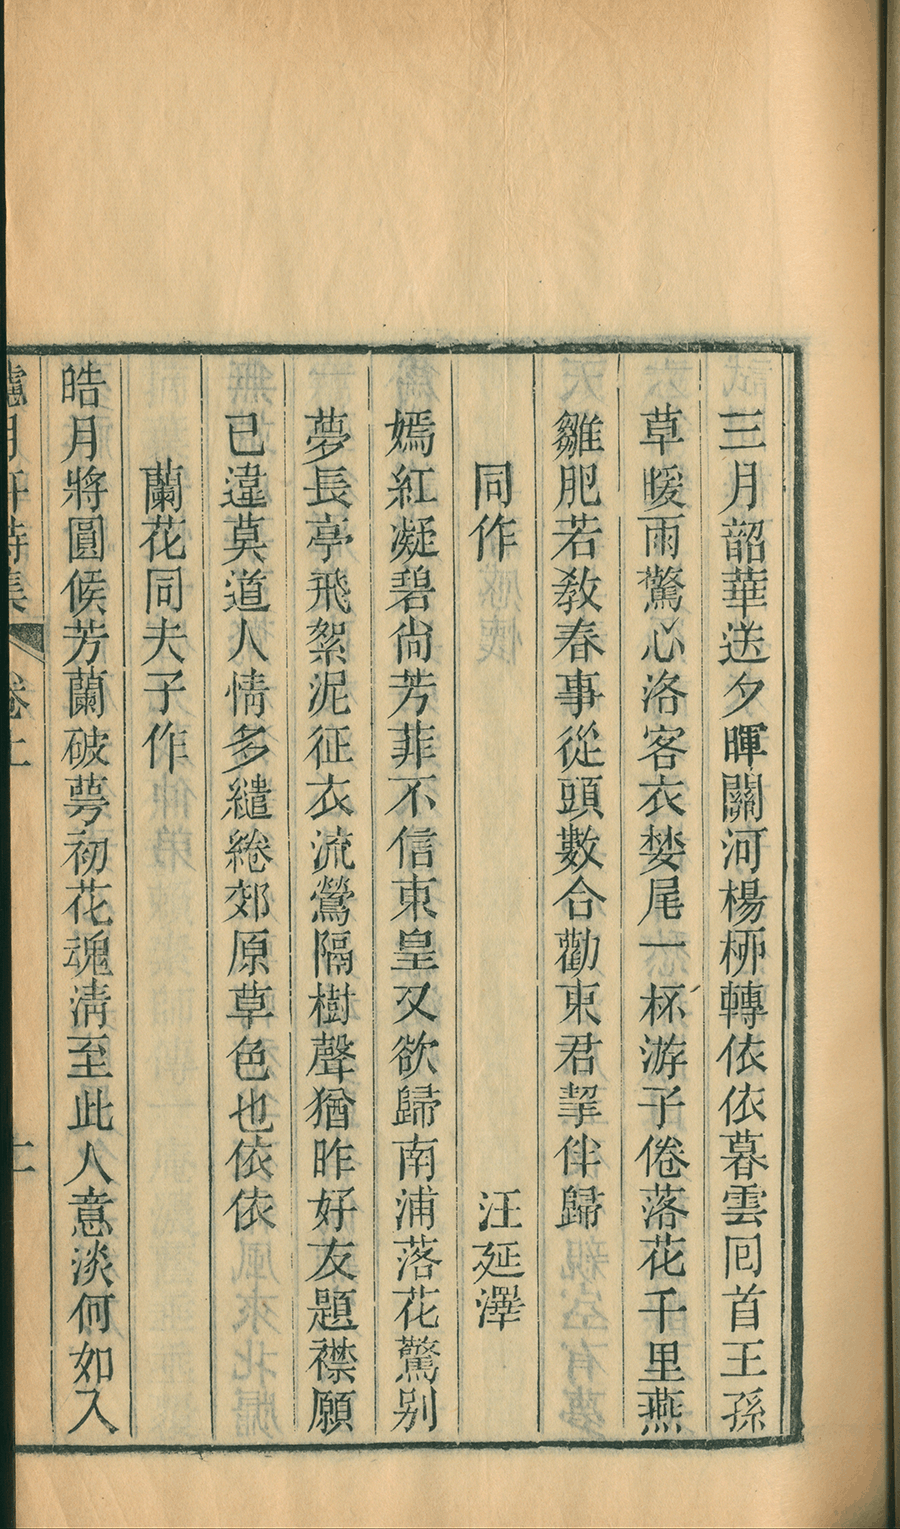 三月韶華送夕暉關河楊桺轉依依暮雲囘首王孫
草暖雨驚心洛客衣婪尾一杯游子倦落花千里燕
雛肥若敎春事從頭數合勸東君挈伴歸
同作 汪延澤
嫣紅凝碧尙芳菲不信東皇又欲歸南浦落花驚别
夢長亭飛絮泥征衣流鶯隔樹聲猶昨好友題襟願
已違莫道人情多繾綣郊原草色也依依
蘭花同夫子作
皓月將圓候芳蘭破萼初花魂淸至此人意淡何如入
月軒詩集 卷上